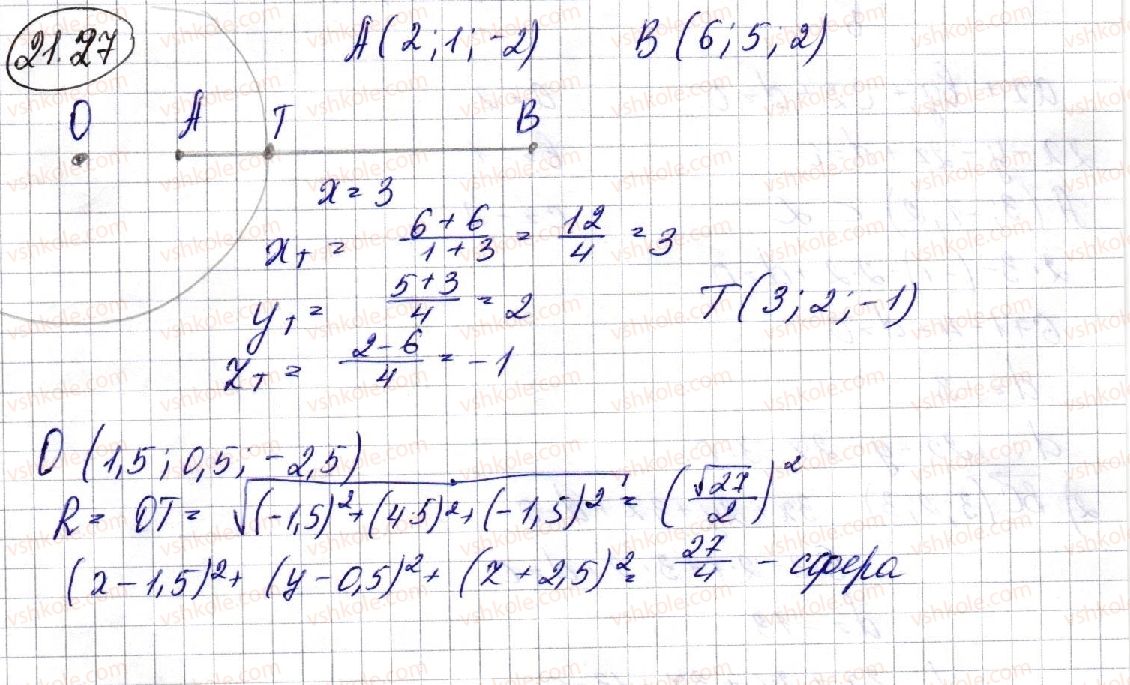 21.27 A(2; 1; -2) B(6; 5; 2)
O A T B
x = 3
x_T = \frac{6+6}{1+3} = \frac{12}{4} = 3
y_T = \frac{5+3}{4} = 2 T(3; 2; -1)
z_T = \frac{2-6}{4} = -1
O (1,5; 0,5; -2,5)
R = OT = \sqrt{(-1,5)^2 + (45)^2 + (-1,5)^2} = (\frac{\sqrt{27}}{2})^2
(x-1,5)^2 + (y-0,5)^2 + (z+2,5)^2 = \frac{27}{4} - сфера